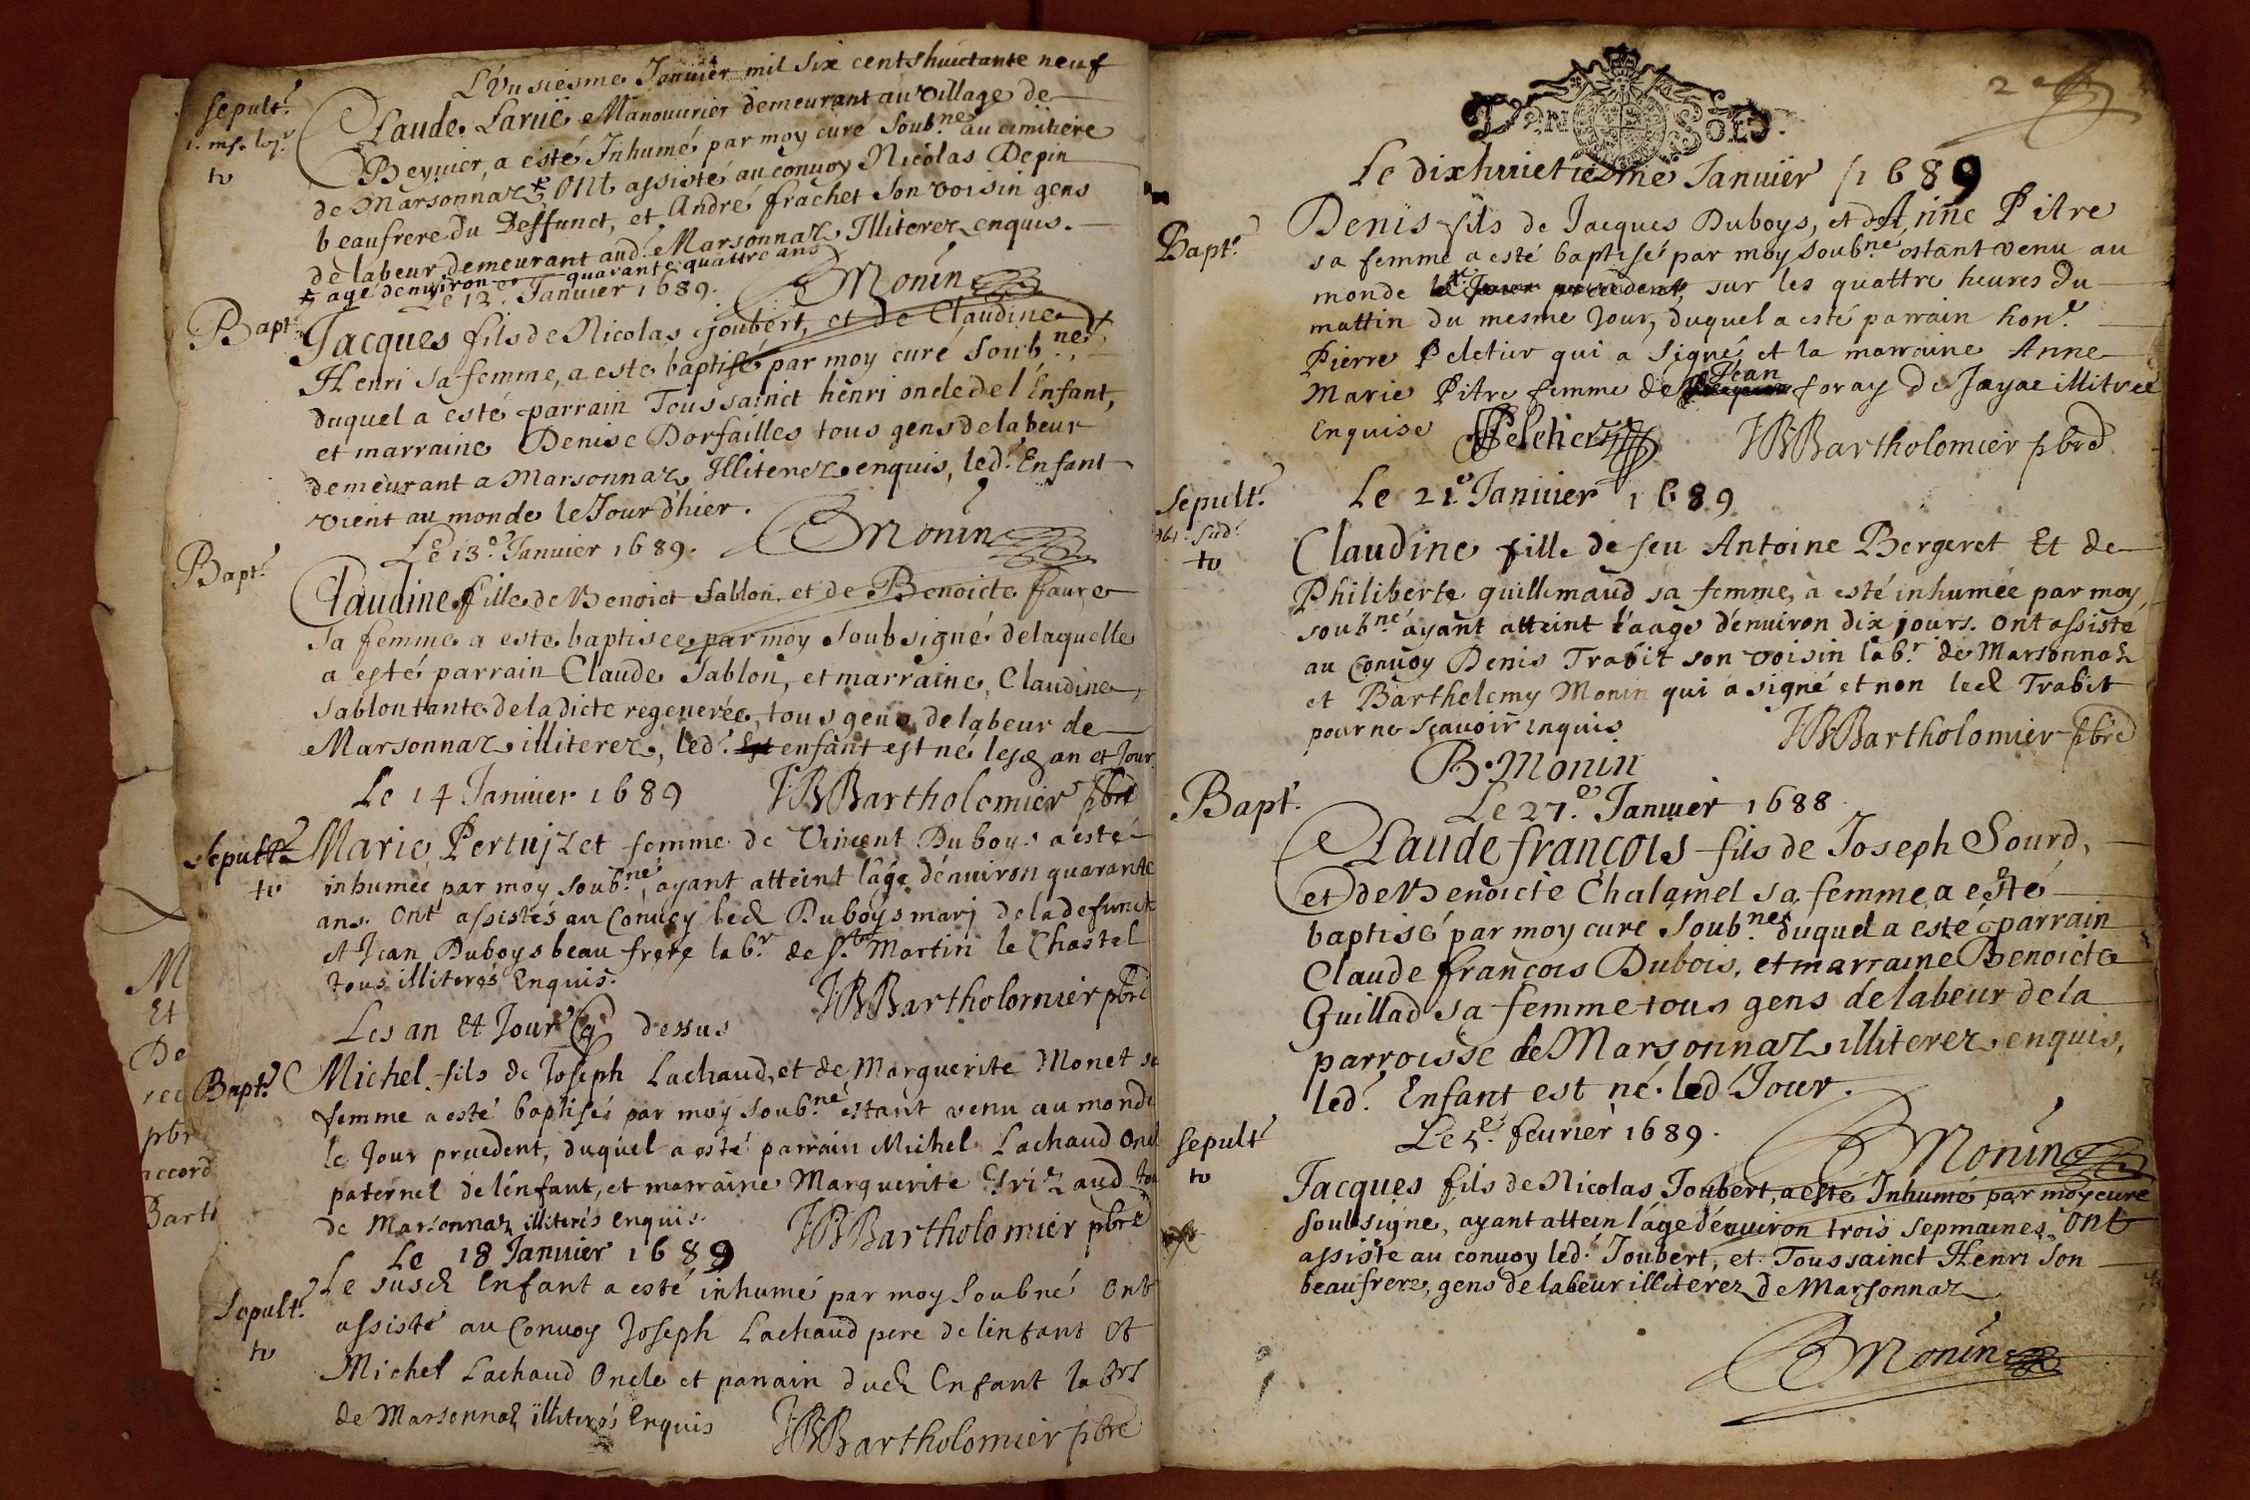 L'Vnsiesme Januier mil six cents huictante neuf
sepult.e
Claude Laruë Manouurier demeurant au village de
Beynier, a esté Inhumé par moy curé Soub.né au cimitiere
tv
de Marsonnaz, Ont assisté au conuoy Nicolas Depin
beaufrere du Deffunct, et André frachet Son voisin gens
de labeur demeurant aud. Marsonnaz Illiterez enquis.
agé denuiron quarante quattre ans
Monin
Le 12.e Januier 1689.
Bapt.
Jacques fils de Nicolas joubert, et de Claudine
Henri sa femme, a esté baptisé par moy curé Soub.né,
duquel a esté parrain Toussainct henri oncle de l'Enfant,
et marraine Denise Dorfailles tous gens de labeur
demeurant a Marsonnaz Illiterez enquis, led. Enfant
vient au monde le Jour d'hier.
Monin
Le 13.e Januier 1689.
Bapt.e
Claudine fille de Benoict Sablon et de Benoicte faure
sa femme a esté baptisee par moy soubsigné de laquelle
a esté parrain Claude Sablon, et marraine Claudine
Sablon tante de la dicte regenerée, tous gens de labeur de
Marsonnaz illiterez, led. enfant est né lesd an et Jour.
Le 14 Januier 1689
JBBartholomier pbre
sepult.e
Marie Pertujzet femme de Vincent Duboys a esté
tv
inhumée par moy soub.né, ayant atteint l'âge d'enuiron quarante
ans. Ont assistés au Conuoy led Duboys marj de la defuncte
et Jean Duboys beau frere lab.r de St. Martin le Chastel
tous illiterés Enquis.
JBBartholomier pbre
Les an et Jour q dessus
Bapt.e
Michel fils de Joseph Lachaud, et de Marguerite Monet sa
femme a esté baptisés par moy soub.né, estant venu au monde
le Jour precedent, duquel a esté parrain Michel Lachaud Oncl
paternel de l'enfant, et marraine Marguerite Grizaud
de Marsonnaz illiterés Enquis.
JBBartholomier pbre
Le 18 Januier 1689
Sepult.e
Le susd Enfant a esté inhumé par moy Soubné Ont
tv
assisté au Conuoy Joseph Lachaud pere de l'enfant et
Michel Lachaud Oncle et parrain dud Enfant labrs
de Marsonnaz illiterés Enquis
JBBartholomier pbre
M
Et
De
pbr
accord
Barth
2e
Le dixhuictiesme Januier 1689
Bapt.e
Denis fils de Jacques Duboys, et de Anne Pitre
sa femme a esté baptisé par moy soub.né estant venu au
monde le Jour precedent, sur les quattre heures du
mattin du mesme Jour, duquel a esté parrain hon.e
Pierre Peletier qui a signé, et la marraine Anne
Marie Pitre femme de Jean foray de Jayac illitree
Enquise
Peletier
JBBartholomier pbre
Sepult.e
Le 21.e Januier 1689
tv
Claudine fille de feu Antoine Bergeret Et de
Philiberte guillimaud sa femme, a esté inhumée par moy
soub.né ayant atteint l'aage d'enuiron dix jours. Ont assisté
au Conuoy Denis Trabit son voisin lab.r de Marsonnaz
et Barthelemy Monin qui a signé et non led Trabit
pour ne sçauoir enquis
JBBartholomier pbre
B. Monin
Bapt.
Le 27.e Januier 1688
Claude françois fils de Joseph Sourd,
et de Benoicte Chalamel sa femme a esté
baptisé par moy curé soub.né duquel a esté parrain
Claude françois Dubois, et marraine Benoicte
Guillad sa femme tous gens de labeur de la
parroisse de Marsonnaz illiterez enquis,
led. Enfant est né led Jour.
Monin
Le 5.e feurier 1689.
Sepult
tv
Jacques fils de Nicolas Joubert, a esté Inhumé par moy curé
soubsigné, ayant attein l'age d'enuiron trois sepmaines, Ont
assisté au conuoy led. Joubert, et Toussainct Henri Son
beaufrere, gens de labeur illiterez de Marsonnaz
Monin